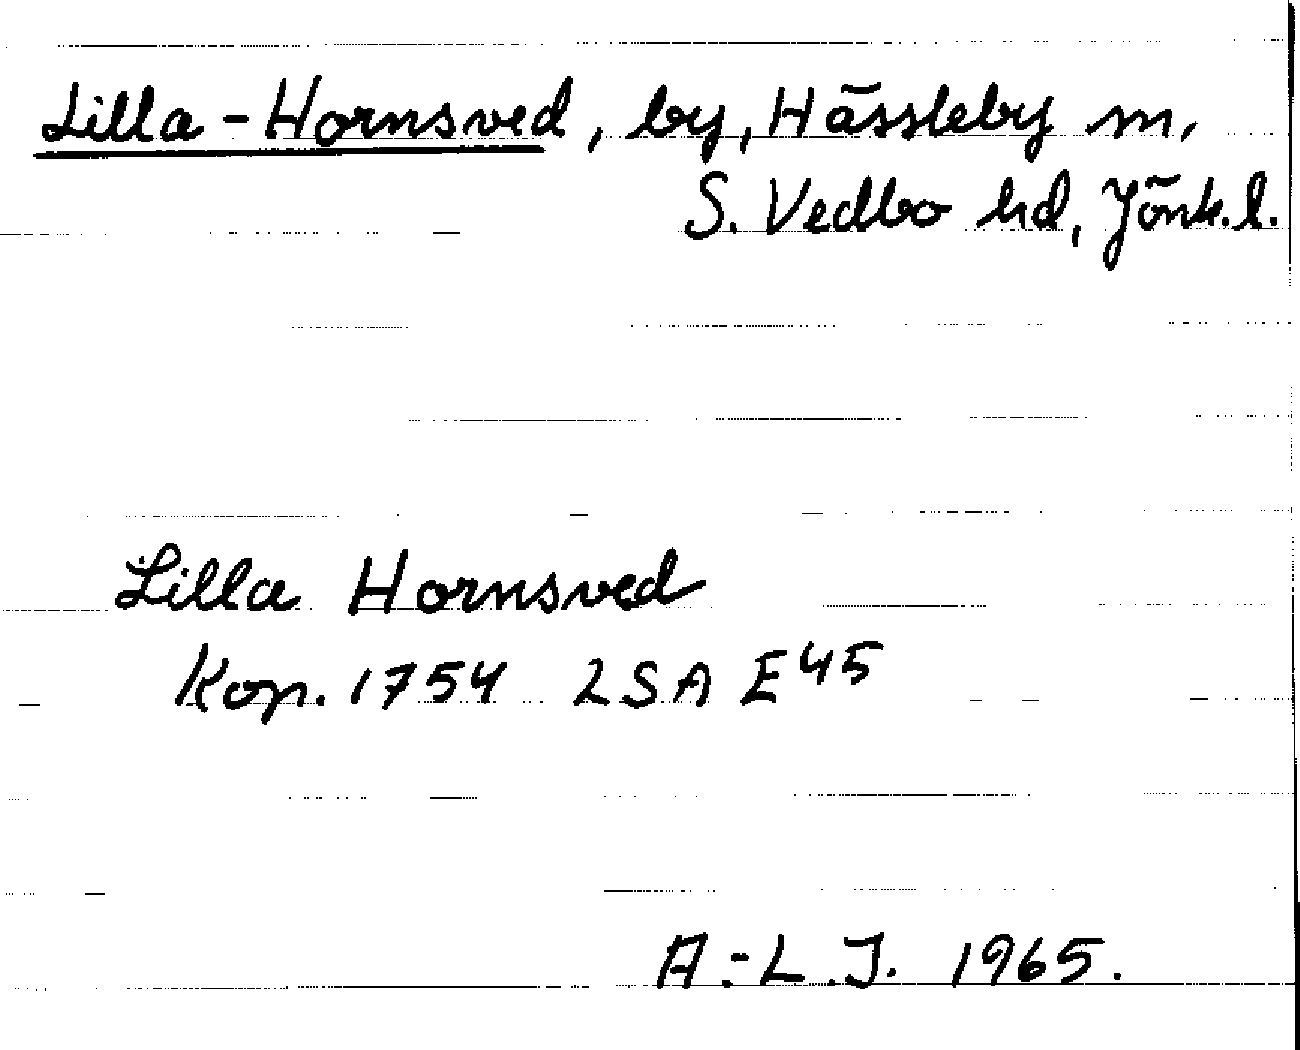 Lilla-Hornsved, by, Hässleby sn,
S. Vedbo hd, Jönk.l.
Lilla Hornsved
Kop. 1754 LSA E45
A.-L.J. 1965.